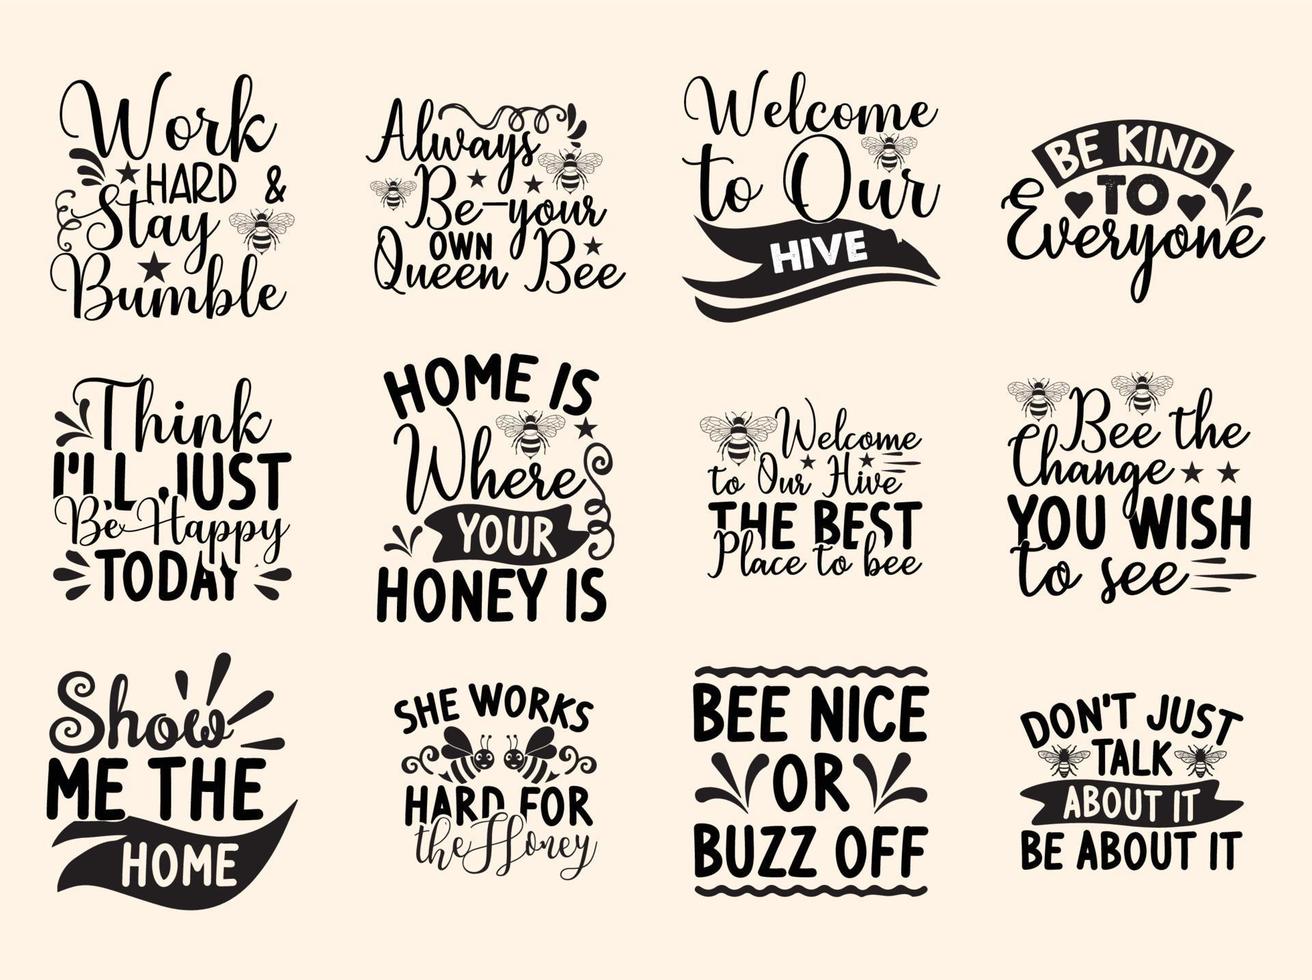 Work
HARD &
Stay
Bumble
Always
Be-your
OWN
Queen Bee
Welcome
to Our
HIVE
BE KIND
TO
Everyone
Think
I'LL JUST
Be Happy
TODAY
HOME IS
Where
YOUR
HONEY IS
Welcome
to Our Hive
THE BEST
Place to bee
Bee the
Change
YOU WISH
to see
Show
ME THE
HOME
SHE WORKS
HARD FOR
the Honey
BEE NICE
OR
BUZZ OFF
DON'T JUST
TALK
ABOUT IT
BE ABOUT IT